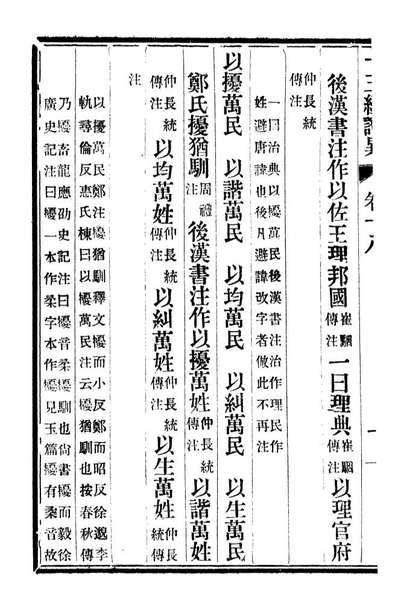 卷十八
後漢書注作以佐王理邦國崔駰傳注一曰理典崔駰傳注以理官府
仲長統傳注
一曰治典以犪萬民後漢書注治作理民作
姓避唐諱也後凡避諱改字者倣此不再注
以擾萬民 以諧萬民 以均萬民 以糾萬民 以生萬民
鄭氏擾猶馴周禮注後漢書注作以擾萬姓仲長統傳注以諧萬姓
仲長統傳注以均萬姓仲長統傳注以糾萬姓仲長統傳注以生萬姓仲長統傳
注
以擾萬民鄭注犪猶馴釋文犪而小反鄭而昭反徐邈李
軌尋倫反惠氏棟曰以犪萬民注云犪猶馴也按春秋傳
乃犪畜龍應劭史記注曰犪音柔犪馴也尚書犪而毅徐
廣史記注曰犪一本作柔字本作犪兄玉篇犪有柔音故